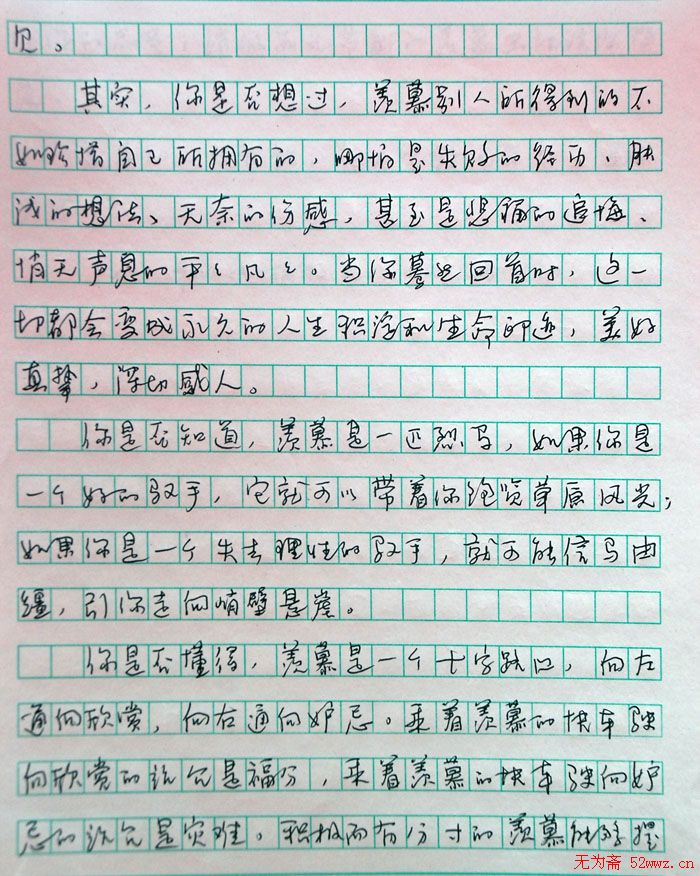 见。
其实，你是否想过，羡慕别人所得到的不
如珍惜自己所拥有的，哪怕是失败的经历、肤
浅的想法、无奈的伤感，甚至是悲痛的追悔、
悄无声息的平平凡凡。当你蓦然回首时，这一
切都会变成永久的人生积淀和生命印迹，美好
真挚，深切感人。
你是否知道，羡慕是一匹烈马，如果你是
一个好的驭手，它就可以带着你饱览草原风光；
如果你是一个失去理性的驭手，就可能信马由
缰，引你走向峭壁悬崖。
你是否懂得，羡慕是一个十字路口，向左
通向欣赏，向右通向妒忌。乘着羡慕的快车驶
向欣赏的站点是福分，乘着羡慕的快车驶向妒
忌的站点是灾难。积极而有分寸的羡慕能够摆
无为斋 52wwz.cn